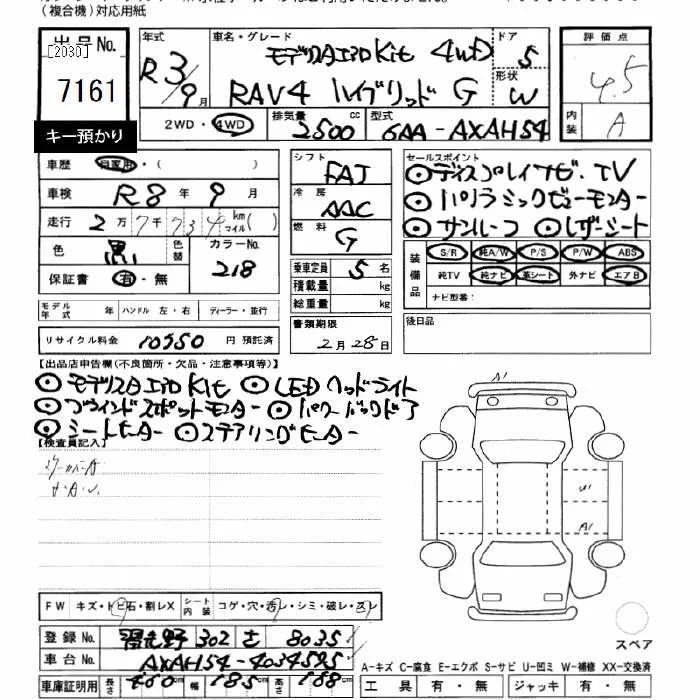 (複合機)対応用紙
出品No.
[2030]
7161
キー預かり
年式
R3/9月
車名・グレード
モデリスタエアロKit 4WD
RAV4 ハイブリッド G
ドア
5
形状
W
評価点
4.5
内装
A
2WD・4WD
排気量
2500 cc
型式
6AA-AXAH54
車歴
自家用・( )
車検
R8年9月
走行
2万7千734 km マイル( )
色
黒
色替
カラーNo.
218
保証書
有・無
シフト
FAT
冷房
AAC
燃料
G
乗車定員 5名
積載量 kg
総重量 kg
書類期限
2月28日
セールスポイント
ディスプレイナビ.TV
パノラミックビューモニター
サンルーフ レザーシート
装備品
S/R 純A/W P/S P/W ABS
純TV 純ナビ 革シート 外ナビ エアB
ナビ型番:
後日品
モデル年式 年 ハンドル 左・右 ディーラー・並行
リサイクル料金 10550 円 預託済
【出品店申告欄(不良箇所・欠品・注意事項等)】
モデリスタエアロKit LEDヘッドライト
ブラインドスポットモニター パワーバックドア
シートヒーター ステアリングヒーター
【検査員記入】
A1
W1
A1
FW キズ・トビ石・割レX
シート内装 コゲ・穴・汚レ・シミ・破レ・スレ
登録No. 習志野 302 さ 8035
車台No. AXAH54-4034595
車庫証明用 長さ 460cm 幅 185cm 高さ 168cm
スペア
A-キズ C-腐食 E-エクボ S-サビ U-凹ミ W-補修 XX-交換済
工具 有・無 ジャッキ 有・無